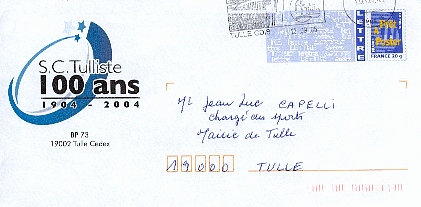 S.C. Tulliste
100 ans
1904 - 2004
BP 73
19002 Tulle Cedex
TULLE CDIS
LETTRE
Prêt
à
Poster
FRANCE 20g
M. Jean Luc CAPELLI
Chargé des sports
Mairie de Tulle
19000 TULLE